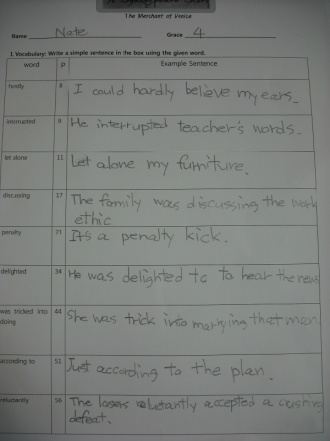 The Merchant of Venice
Name Nate Grace 4
1 Vocabulary: Write a simple sentence in the box using the given word.
word p Example Sentence
hardly 8 I could hardly believe my ears.
interrupted 9 He interrupted teacher's words.
let alone 11 Let alone my furniture.
discussing 17 The family was discussing the work
ethic
penalty 21 It's a penalty kick.
delighted 34 He was delighted to to hear the news
was tricked into 44 She was trick into marrying that man
doing
according to 51 Just according to the plan.
reluctantly 56 The losers reluctantly accepted a crushing
defeat.